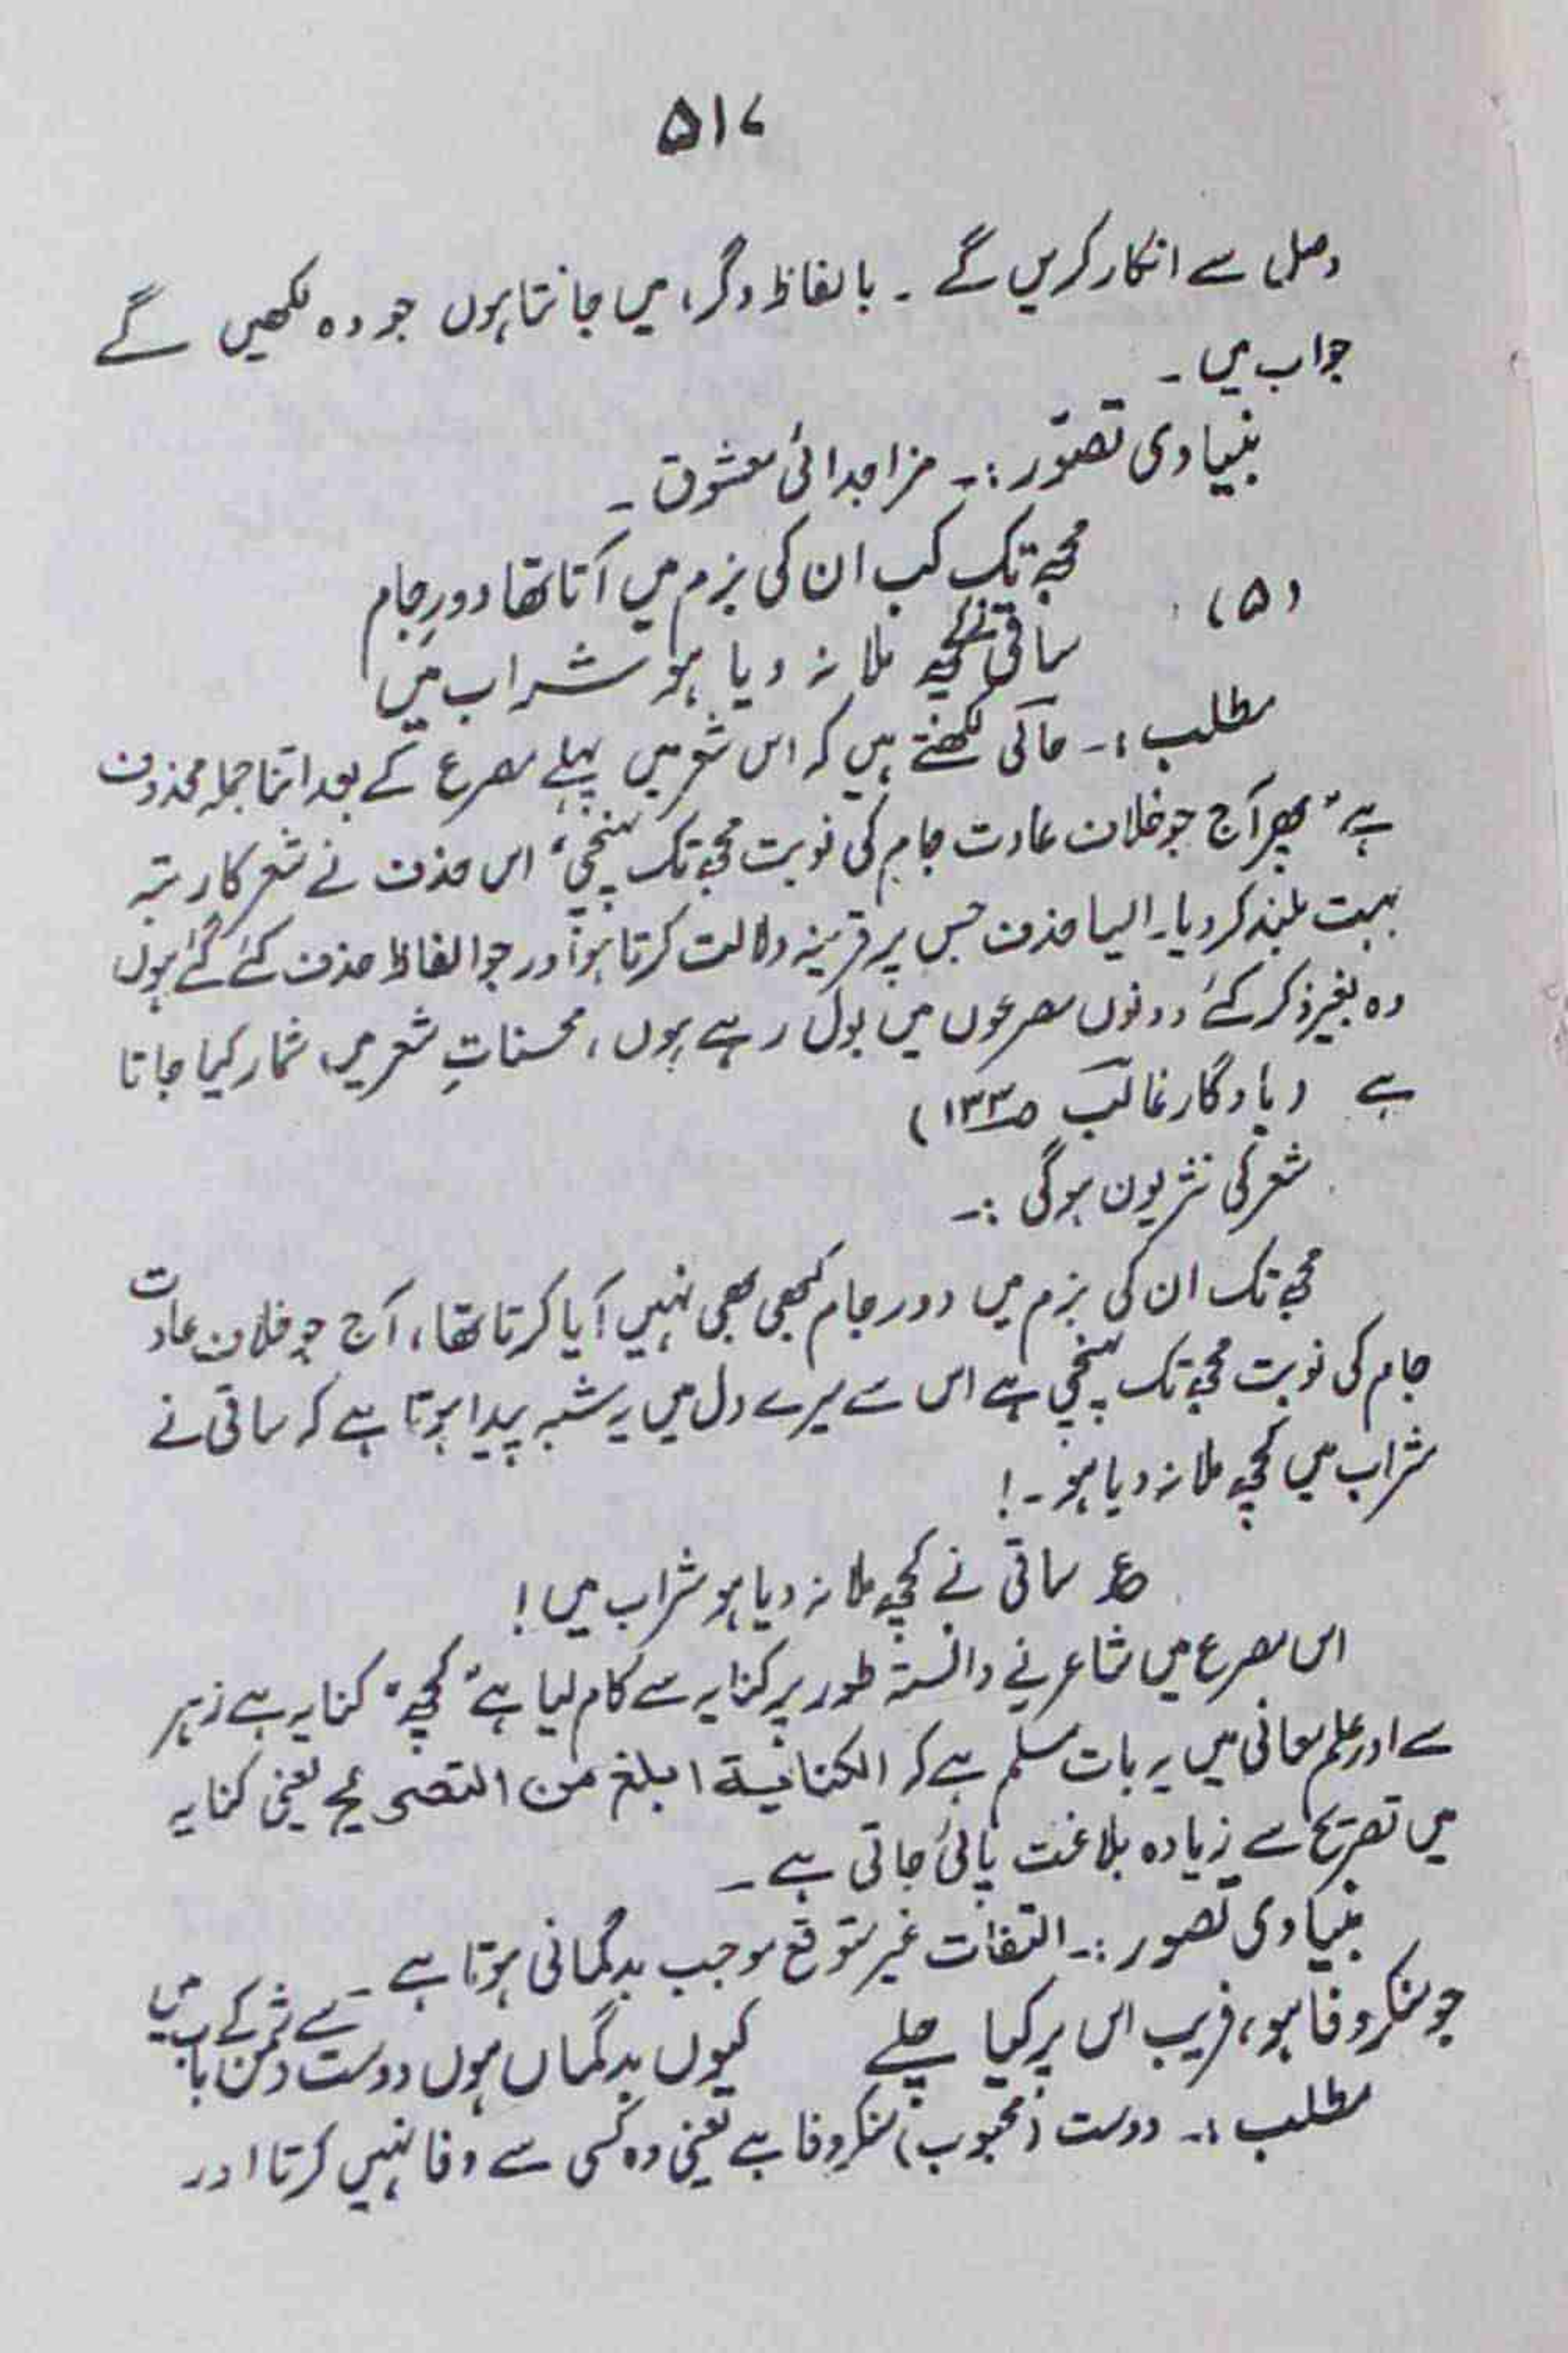 ۵۱۷
وصل سے انکار کریں گے ۔ بالفاظ دگر، میں جانتا ہوں جو وہ لکھیں گے
جواب میں ۔
بنیادی تصوّر :۔ مزاجدائی معشوق ۔
(۵) مجھ تک کب ان کی بزم میں آتا تھا دورِ جام
ساقی نے کچھ ملا نہ دیا ہو شراب میں
مطلب :۔ حالی لکھتے ہیں کہ اس شعر میں پہلے مصرع کے بعد اتنا جملہ محذوف
ہے "پھر آج جو خلاف عادت جام کی نوبت مجھ تک پہنچی" اس حذف نے شعر کا رتبہ
بہت بلند کر دیا۔ ایسا حذف جس پر قرینہ دلالت کرتا ہو اور جو الفاظ حذف کئے گئے ہوں
وہ بغیر ذکر کئے دونوں مصرعوں میں بول رہے ہوں، محسناتِ شعر میں شمار کیا جاتا
ہے (یادگار غالب ص۱۳۳)
شعر کی نثر یون ہوگی :۔
مجھ تک ان کی بزم میں دور جام کبھی بھی نہیں آیا کرتا تھا، آج جو خلاف عادت
جام کی نوبت مجھ تک پہنچی ہے اس سے میرے دل میں یہ شبہ پیدا ہوتا ہے کہ ساقی نے
شراب میں کچھ ملا نہ دیا ہو ۔!
ع ساقی نے کچھ ملا نہ دیا ہو شراب میں!
اس مصرع میں شاعر نے دانستہ طور پر کنایہ سے کام لیا ہے "کچھ" کنایہ ہے زہر
سے اور علم معانی میں یہ بات مسلم ہے کہ الکنایۃ ابلغ من التصریح یعنی کنایہ
میں تصریح سے زیادہ بلاغت پائی جاتی ہے ۔
بنیادی تصور :۔ التفات غیر متوقع موجب بدگمانی ہوتا ہے ۔
جو منکر وفا ہو، فریب اس پر کیا چلے کیوں بدگماں ہوں دوست سے دشمن کے باب میں
مطلب :۔ دوست (محبوب) منکر وفا ہے یعنی وہ کسی سے وفا نہیں کرتا اور